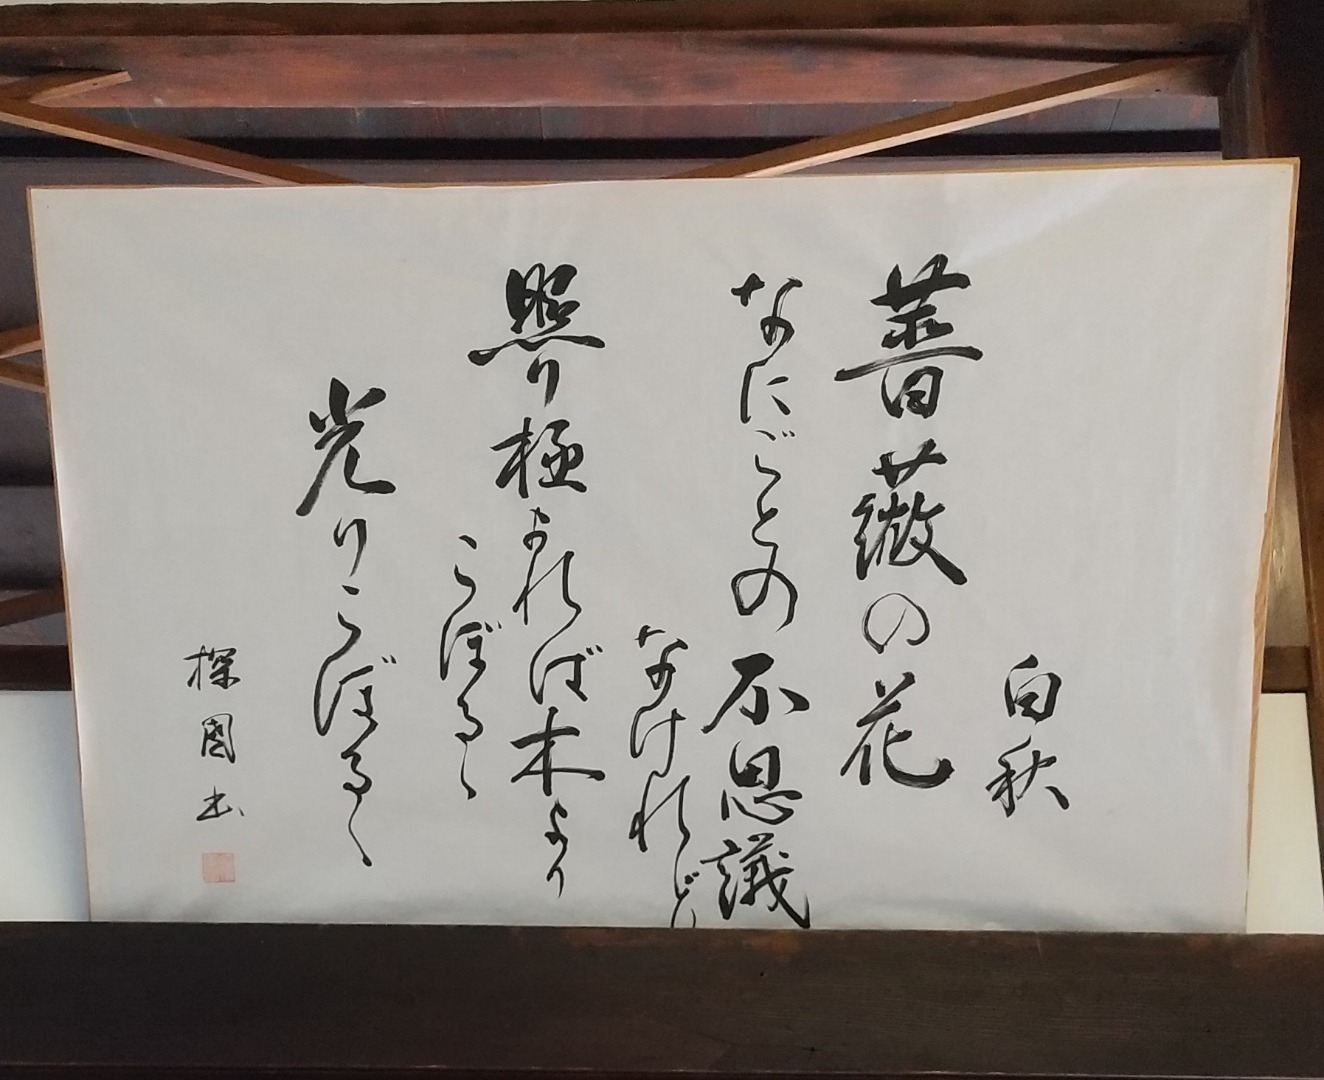 白秋
薔薇の花
なにごとの不思議
なけれど
照り極まれば木より
こぼるゝ
光りこぼるゝ
探國書